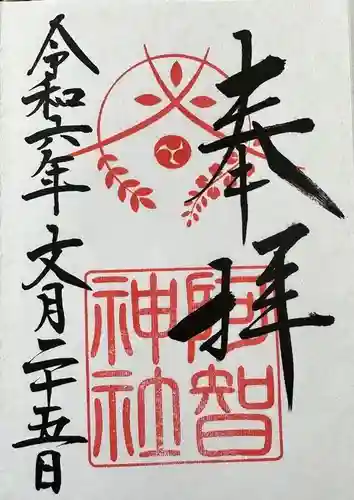 奉拝
阿智
神社
令和六年文月二十五日